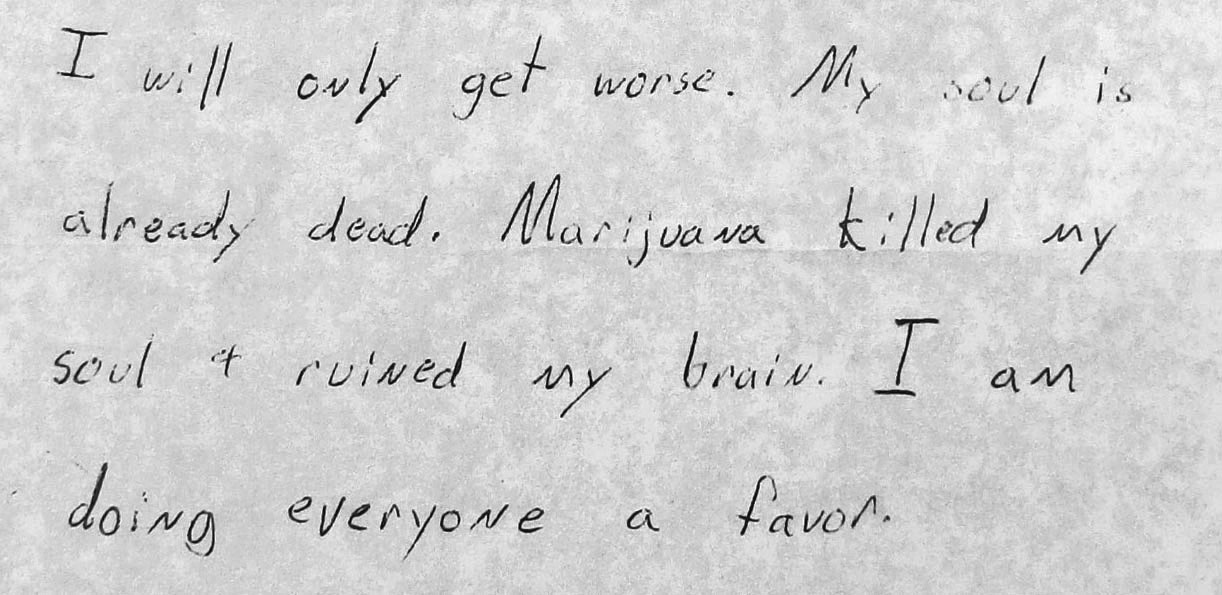 I will only get worse. My soul is
already dead. Marijuana killed my
soul & ruined my brain. I am
doing everyone a favor.